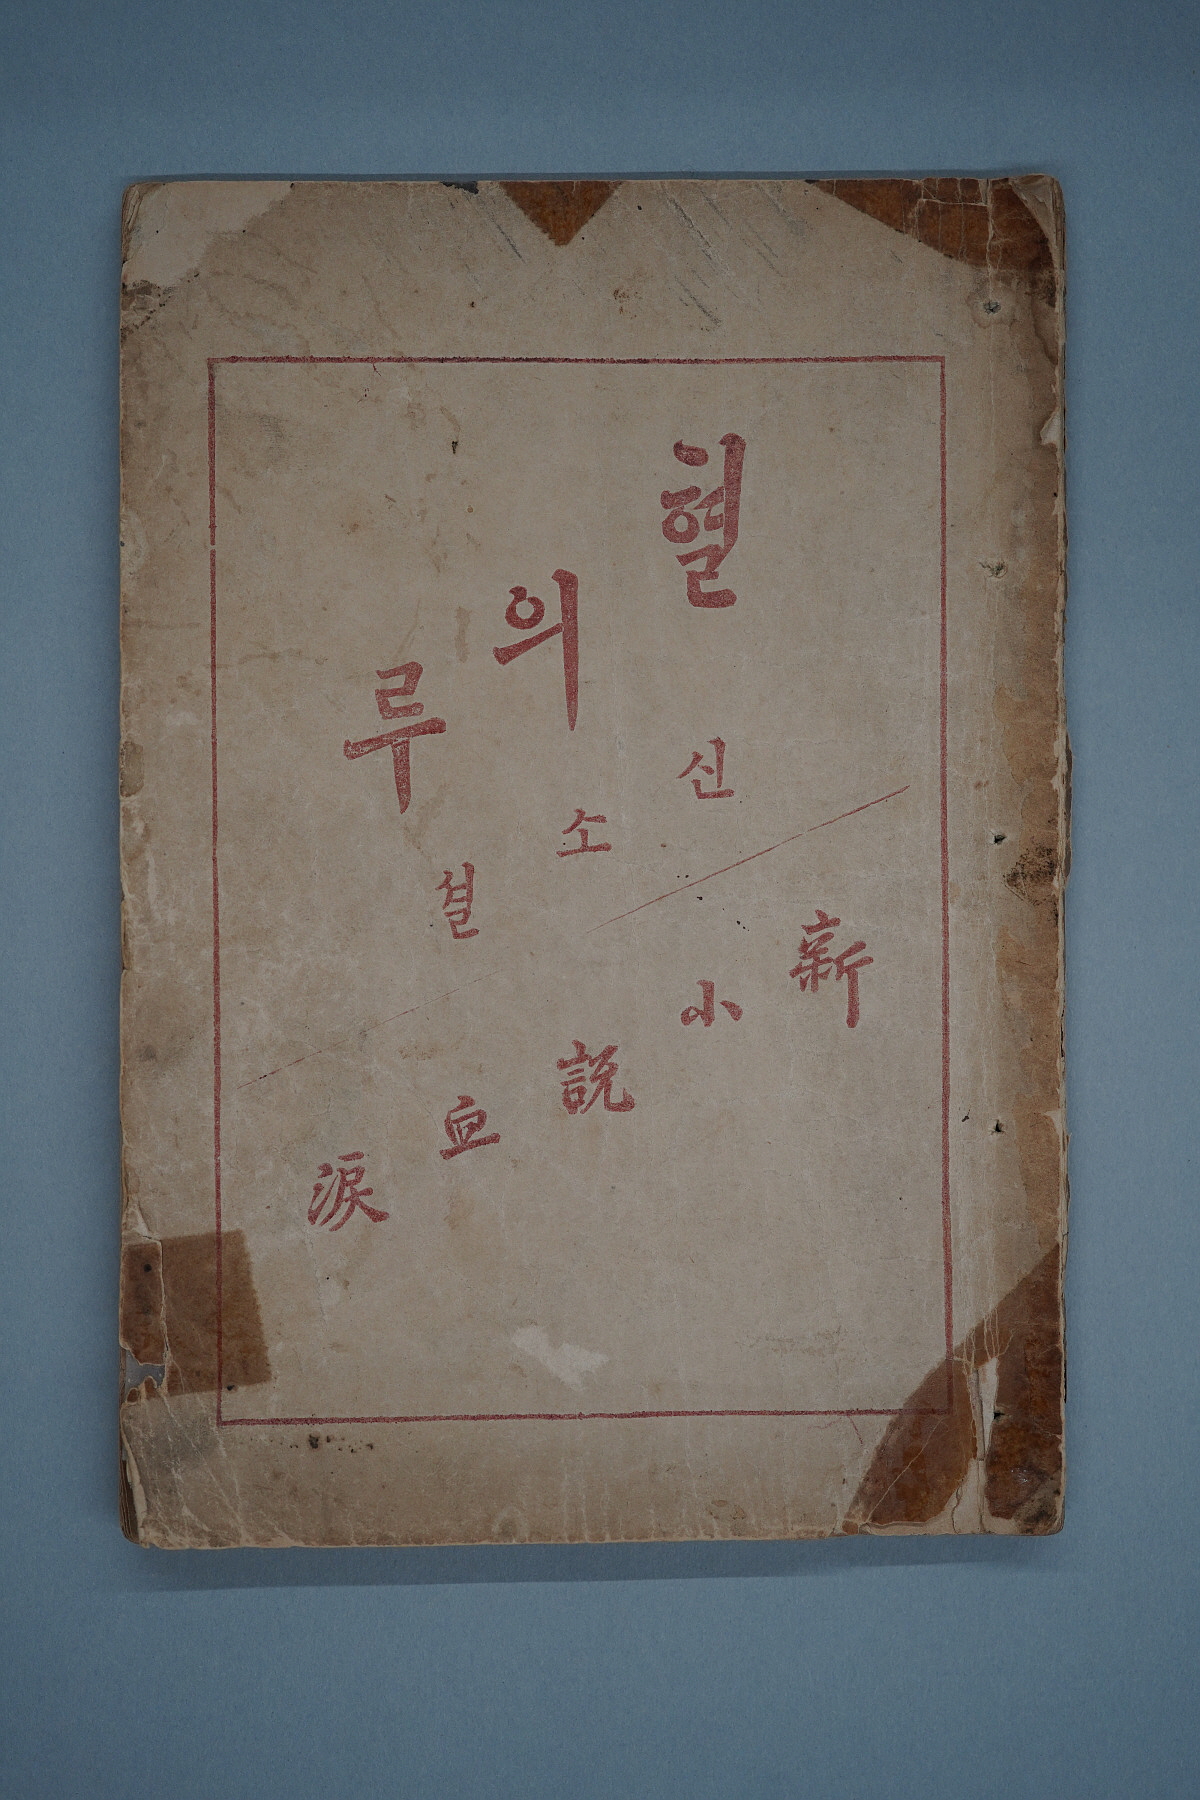 혈의루
신소셜
新小說
血淚